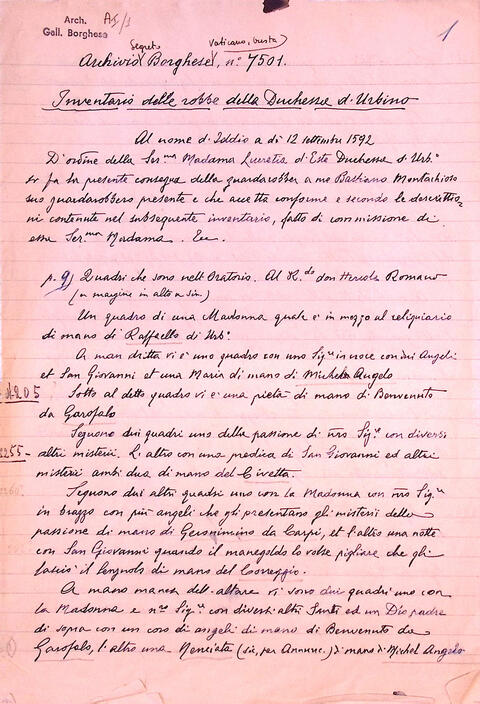 Arch.
Gall. Borghese
A I/1
1
Segreto Vaticano, busta
Archivio Borghese, n° 7501.
Inventario delle robbe della Duchessa d'Urbino
Al nome d'Iddio a di 12 settembre 1592
D'ordine della Ser.ma Madama Lucretia d'Este Duchessa d'Urb.o
se fa la presente consegna della guardarobba a me Bastiano Montachioso
suo guardarobbero presente e che accetta conforme e secondo le descrittio=
ni contenute nel subsequente inventario, fatto di commissione di
essa Ser.ma Madama. Eu.
p. 9) Quadri che sono nell'Oratorio. Al R.do don Hercole Romano
(a margine in alto a sin.)
Un quadro di una Madonna quale è in mezzo al reliquiario
di mano di Raffaello di Urb.o
A man dritta vi è uno quadro con uno Sig.re in croce con dui Angeli
et San Giovanni et una Maria di mano di Michel Angelo
205
Sotto al detto quadro vi è una pietà di mano di Benvenuto
da Garofalo
Seguono dui quadri uno della passione di nro Sig.re con diversi
255-
altri misteri. L'altro con una predica di San Giovanni ed altri
misteri ambi dua di mano del Civetta.
Seguono dui altri quadri uno con la Madonna con nro Sig.re
in brazzo con più angeli che gli presentano gli misterii della
passione di mano di Geronimino da Carpi, et l'altro una notte
con San Giovanni quando il manegoldo lo volse pigliare che gli
lasciò il lenzuolo di mano del Correggio.
A mano manca dell'altare vi sono dui quadri uno con
la Madonna e nro Sig.re con diversi altri Santi ed un Dio padre
di sopra con un coro di angeli di mano di Benvenuto da
Garofalo, l'altro una Nenciata (sic, per Annunc.) di mano di Michel Angelo